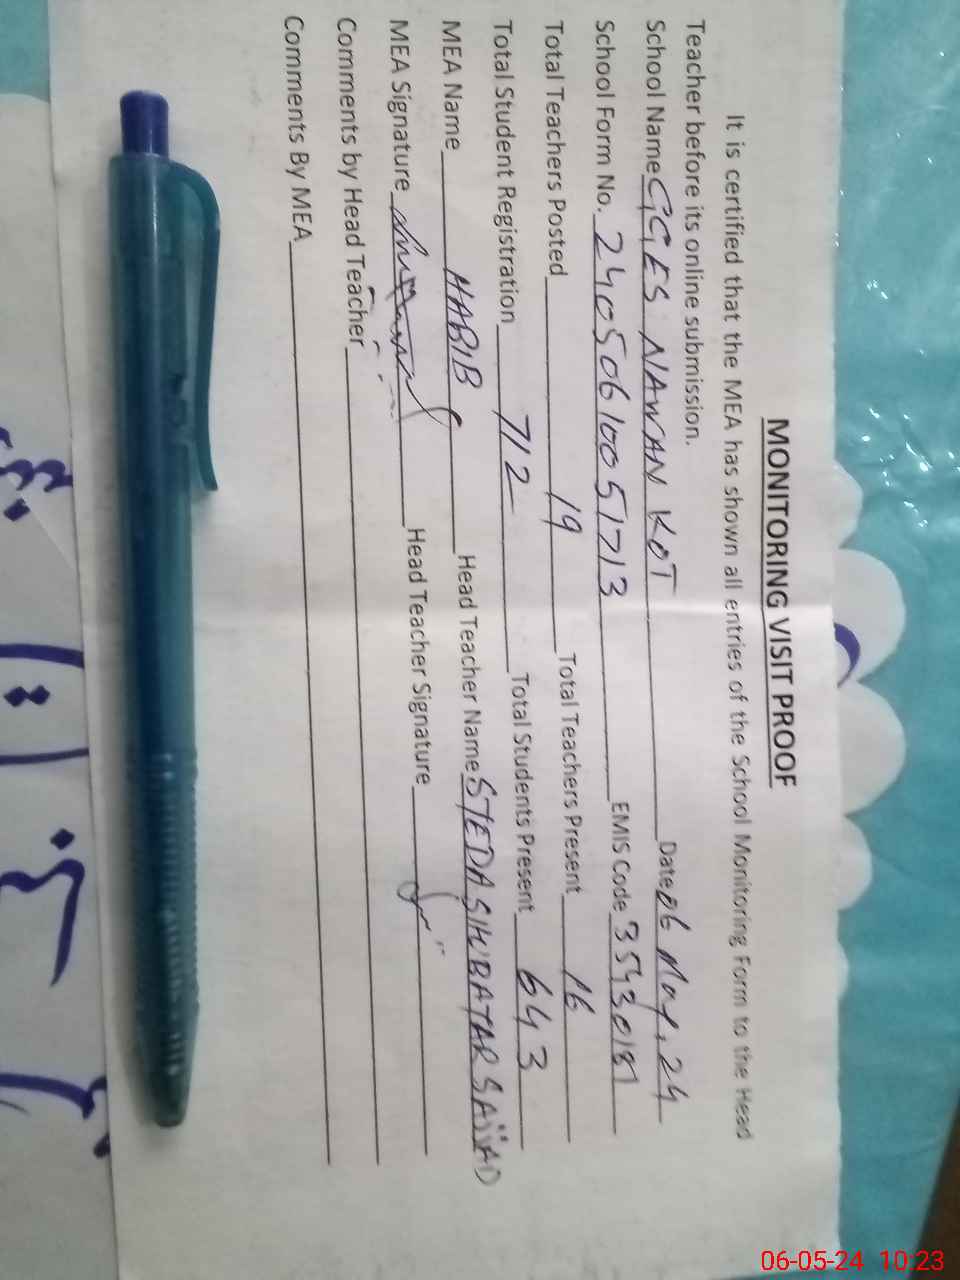 MONITORING VISIT PROOF
It is certified that the MEA has shown all entries of the School Monitoring Form to the Head
Teacher before its online submission.
School Name GGES NAWAN KOT Date 06 May, 24
School Form No. 24050610051713 EMIS Code 35430181
Total Teachers Posted 19 Total Teachers Present 16
Total Student Registration 712 Total Students Present 643
MEA Name HABIB Head Teacher Name SAJJAD
MEA Signature Head Teacher Signature
Comments by Head Teacher
Comments By MEA
06-05-24 10:23